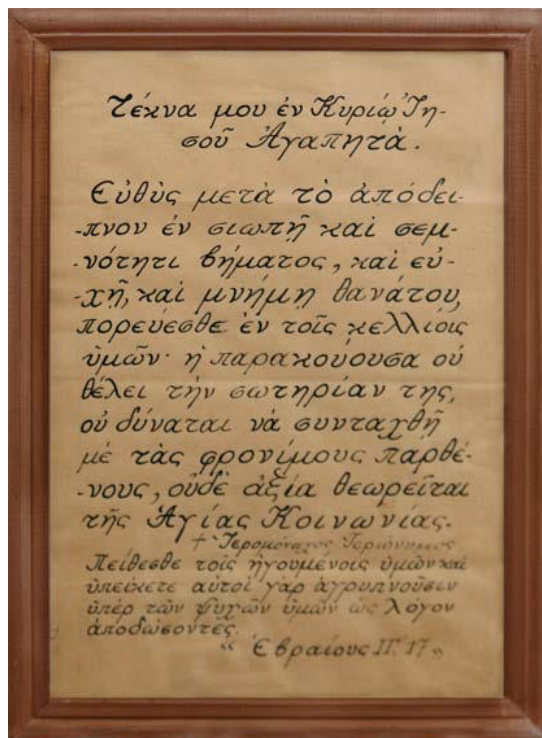 Τέκνα μου ἐν Κυρίῳ Ἰη-
σοῦ Ἀγαπητὰ.
Εὐθὺς μετὰ τὸ ἀπόδει-
-πνον ἐν σιωπῇ καὶ σεμ-
-νότητι βήματος, καὶ εὐ-
-χῇ, καὶ μνήμῃ θανάτου,
πορεύεσθε ἐν τοῖς κελλίοις
ὑμῶν· ἡ παρακούουσα οὐ
θέλει τὴν σωτηρίαν της,
οὐ δύναται νὰ συνταχθῇ
μὲ τὰς φρονίμους παρθέ-
-νους, οὐδὲ ἀξία θεωρεῖται
τῆς Ἁγίας Κοινωνίας.
+ Ἱερομόναχος Ἱερώνυμος
Πείθεσθε τοῖς ἡγουμένοις ὑμῶν καὶ
ὑπείκετε αὐτοὶ γὰρ ἀγρυπνοῦσιν
ὑπὲρ τῶν ψυχῶν ὑμῶν ὡς λόγον
ἀποδώσοντες.
" Ἑβραίους ΙΓ' 17 "